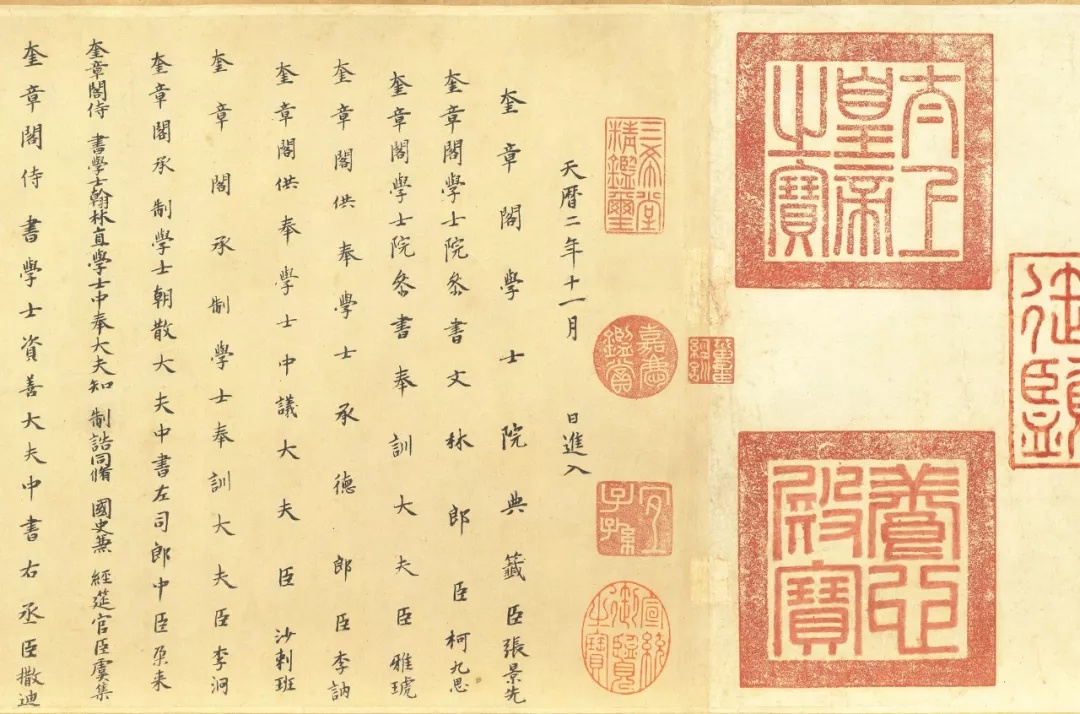 太上皇帝之寶
養心殿寶
三希堂精鑑璽
嘉慶鑑賞
宜子孫
宣統御覽之寶
天暦二年十一月　日進入
奎章閣學士院典籤臣張景先
奎章閣學士院叅書文林郎臣柯九思
奎章閣學士院叅書奉訓大夫臣雅琥
奎章閣供奉學士承德郎臣李訥
奎章閣供奉學士中議大夫臣　沙剌班
奎章閣承　制學士奉訓大夫臣李泂
奎章閣承　制學士朝散大夫中書左司郎中臣朶来
奎章閣侍　書學士翰林直學士中奉大夫知　制誥同脩　國史兼　經筵官臣虞集
奎章閣侍　書學士資善大夫中書右丞臣撒迪